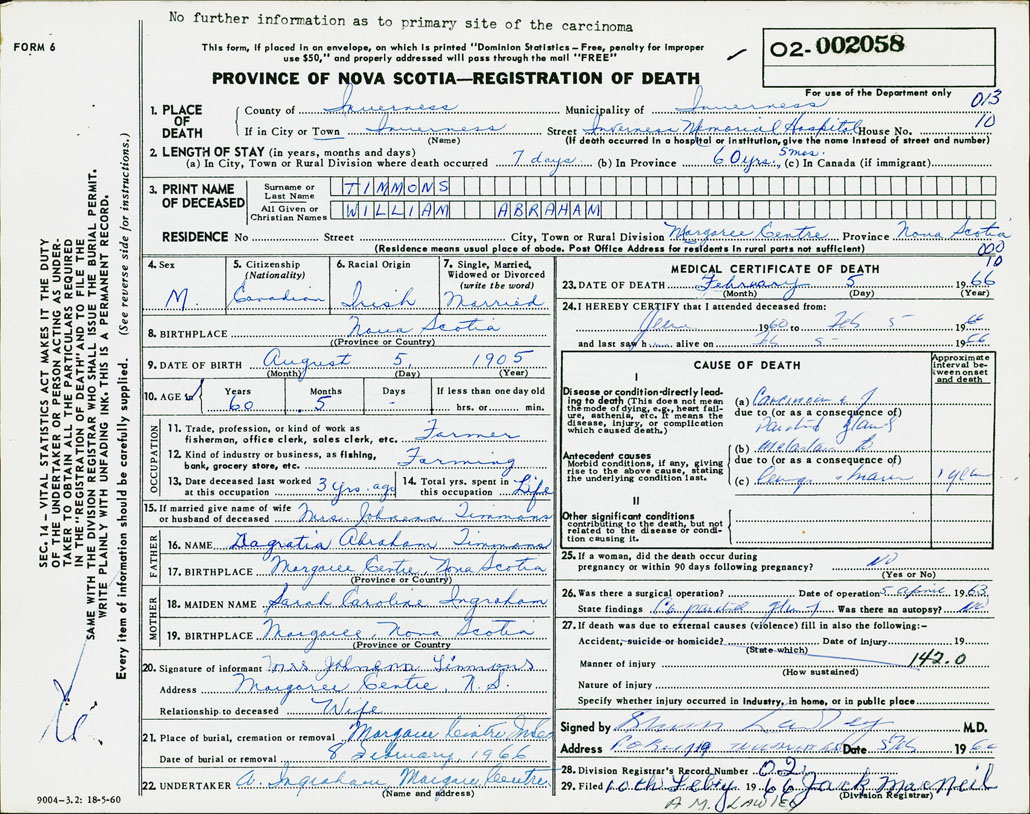 No further information as to primary site of the carcinoma
FORM 6
This form, if placed in an envelope, on which is printed "Dominion Statistics – Free, penalty for improper
use $50," and properly addressed will pass through the mail "FREE"
02-002058
PROVINCE OF NOVA SCOTIA—REGISTRATION OF DEATH
For use of the Department only
013
10
1. PLACE OF DEATH
County of Inverness Municipality of Inverness
If in City or Town Inverness Street Inverness Memorial Hospital House No.
(Name) (If death occurred in a hospital or institution, give the name instead of street and number)
2. LENGTH OF STAY (in years, months and days)
(a) In City, Town or Rural Division where death occurred 7 days (b) In Province 60 yrs. 5 mos. (c) In Canada (if immigrant)
3. PRINT NAME OF DECEASED
Surname or Last Name TIMMONS
All Given or Christian Names WILLIAM ABRAHAM
RESIDENCE No Street City, Town or Rural Division Margaree Centre Province Nova Scotia
(Residence means usual place of abode. Post Office Address for residents in rural parts not sufficient)
000
10
4. Sex M.
5. Citizenship (Nationality) Canadian
6. Racial Origin Irish
7. Single, Married, Widowed or Divorced (write the word) Married
8. BIRTHPLACE Nova Scotia
(Province or Country)
9. DATE OF BIRTH August 5, 1905
(Month) (Day) (Year)
10. AGE in Years 60 Months 5 Days - If less than one day old hrs. or min.
OCCUPATION
11. Trade, profession, or kind of work as
fisherman, office clerk, sales clerk, etc. Farmer
12. Kind of industry or business, as fishing,
bank, grocery store, etc. Farming
13. Date deceased last worked at this occupation 3 yrs. ago
14. Total yrs. spent in this occupation Life
15. If married give name of wife
or husband of deceased Mrs. Johnena Timmons
FATHER
16. NAME Abraham Timmons
17. BIRTHPLACE Margaree Centre, Nova Scotia
(Province or Country)
MOTHER
18. MAIDEN NAME Sarah Caroline Ingraham
19. BIRTHPLACE Margaree, Nova Scotia
(Province or Country)
20. Signature of informant Mrs Timmons
Address Margaree Centre, N.S.
Relationship to deceased Wife
21. Place of burial, cremation or removal Margaree Centre
Date of burial or removal 8 February, 1966
22. UNDERTAKER A. Ingraham, Margaree Centre
(Name and address)
MEDICAL CERTIFICATE OF DEATH
23. DATE OF DEATH February 5 1966
(Month) (Day) (Year)
24. I HEREBY CERTIFY that I attended deceased from:
1960 to Feb 5 1966
and last saw h alive on Feb 5 1966
CAUSE OF DEATH
Approximate interval between onset and death
I
Disease or condition directly leading to death (This does not mean the mode of dying, e.g., heart failure, asthenia, etc. It means the disease, injury, or complication which caused death.)
(a) Carcinoma of
due to (or as a consequence of)
Parotid gland
Antecedent causes
Morbid conditions, if any, giving rise to the above cause, stating the underlying condition last.
(b)
due to (or as a consequence of)
(c) 1 year
II
Other significant conditions
contributing to the death, but not related to the disease or condition causing it.
25. If a woman, did the death occur during
pregnancy or within 90 days following pregnancy? NO
(Yes or No)
26. Was there a surgical operation? Date of operation 5 April 1963
State findings Ca parotid gland Was there an autopsy? NO
27. If death was due to external causes (violence) fill in also the following:–
Accident, suicide or homicide? Date of injury 19
(State which)
142.0
Manner of injury
(How sustained)
Nature of injury
Specify whether injury occurred in Industry, in home, or in public place
Signed by M.D.
Address Date 1966
28. Division Registrar's Record Number 02
29. Filed 10th Feby. 1966 Jack MacNeil
(Division Registrar)
SEC. 14 – VITAL STATISTICS ACT MAKES IT THE DUTY
OF THE UNDERTAKER OR PERSON ACTING AS UNDER-
TAKER TO OBTAIN ALL THE PARTICULARS REQUIRED
IN THE "REGISTRATION OF DEATH" AND TO FILE THE
SAME WITH THE DIVISION REGISTRAR WHO SHALL ISSUE THE BURIAL PERMIT.
WRITE PLAINLY WITH UNFADING INK. THIS IS A PERMANENT RECORD.
Every item of information should be carefully supplied. (See reverse side for instructions.)
9004–3.2: 18-5-60